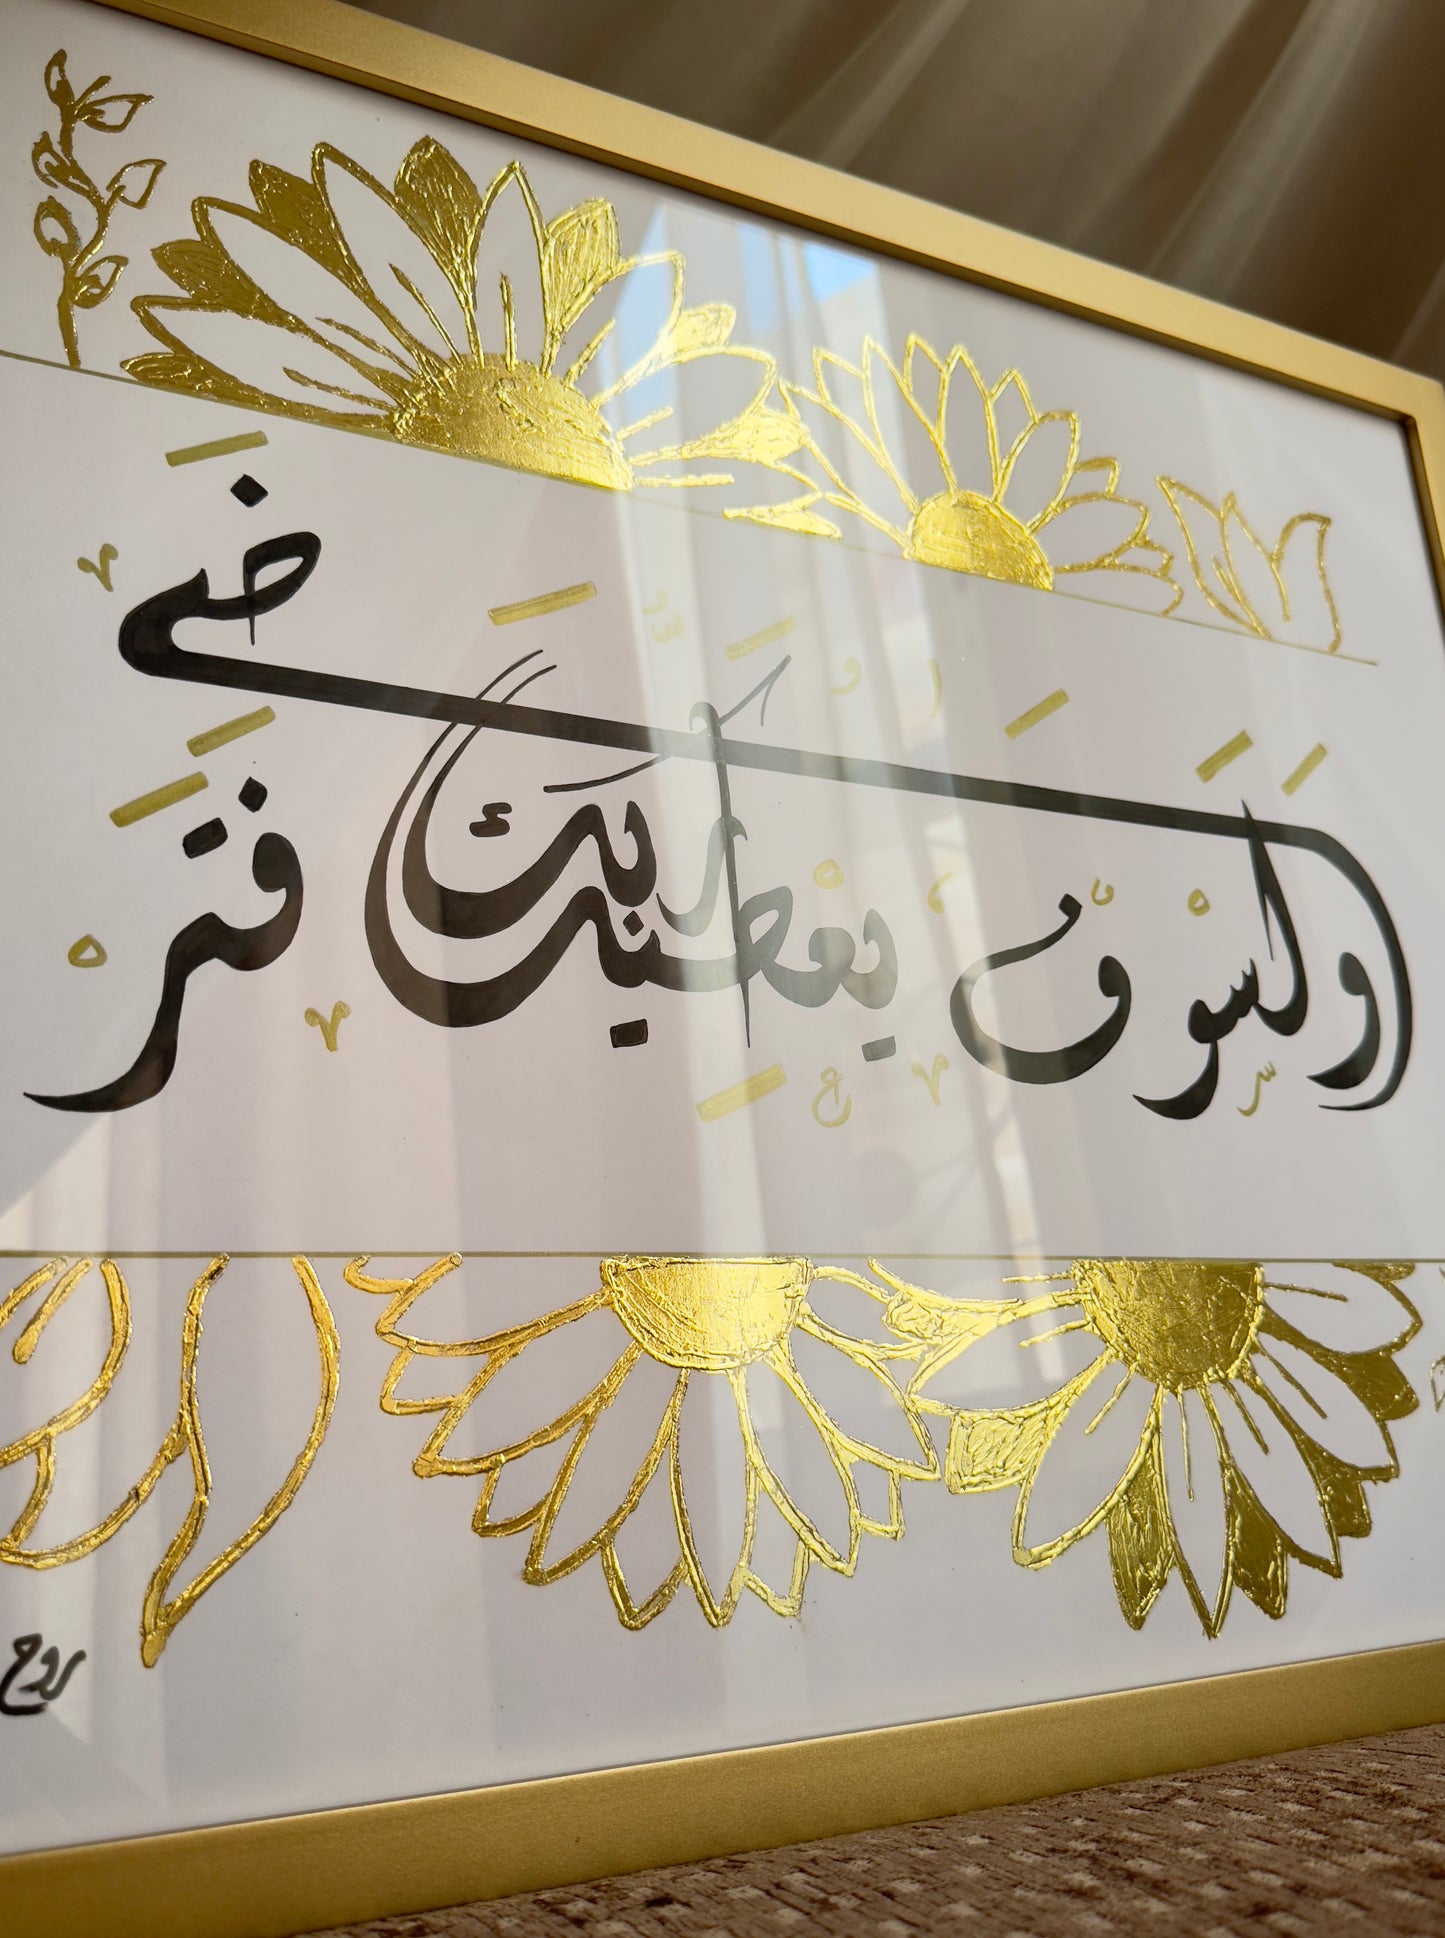 وَلَسَوْفَ يُعْطِيكَ رَبُّكَ فَتَرْضَى
روح